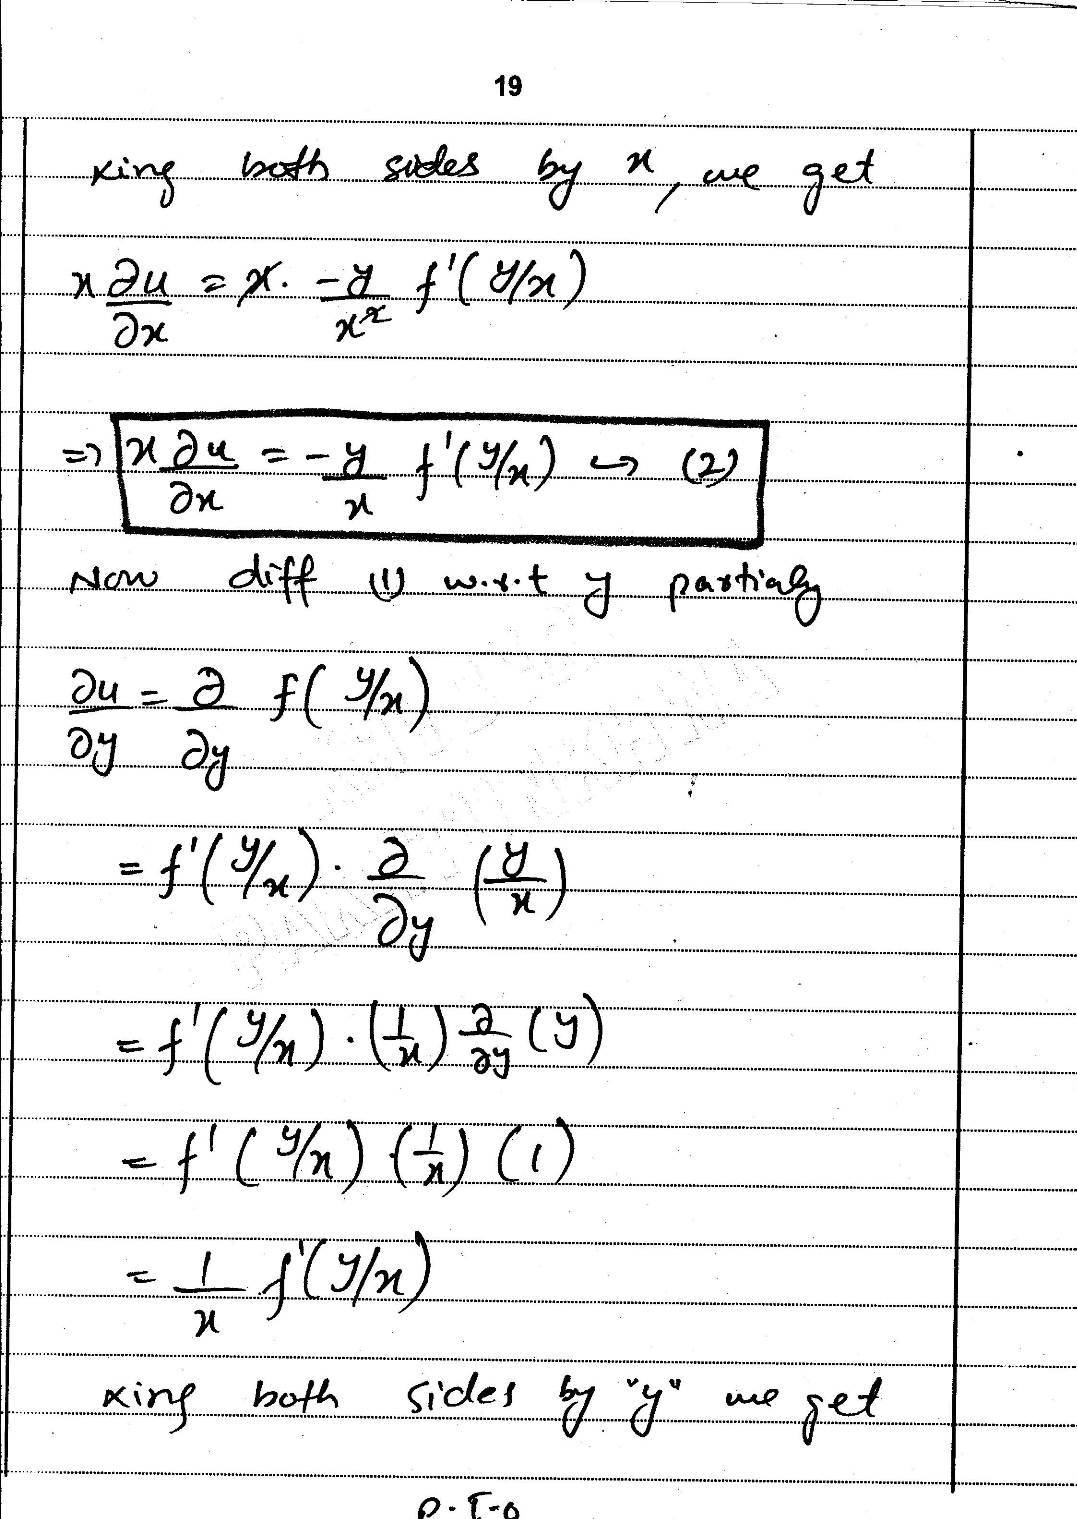 19
xing both sides by x, we get
x ∂u/∂x = x. -y/x² f'(y/x)
=> x ∂u/∂x = -y/x f'(y/x) ↪ (2)
Now diff (1) w.r.t y partialy
∂u/∂y = ∂/∂y f(y/x)
= f'(y/x) . ∂/∂y (y/x)
= f'(y/x) . (1/x) ∂/∂y (y)
= f'(y/x) (1/x) (1)
= 1/x f'(y/x)
xing both sides by "y" we get
P.T.O